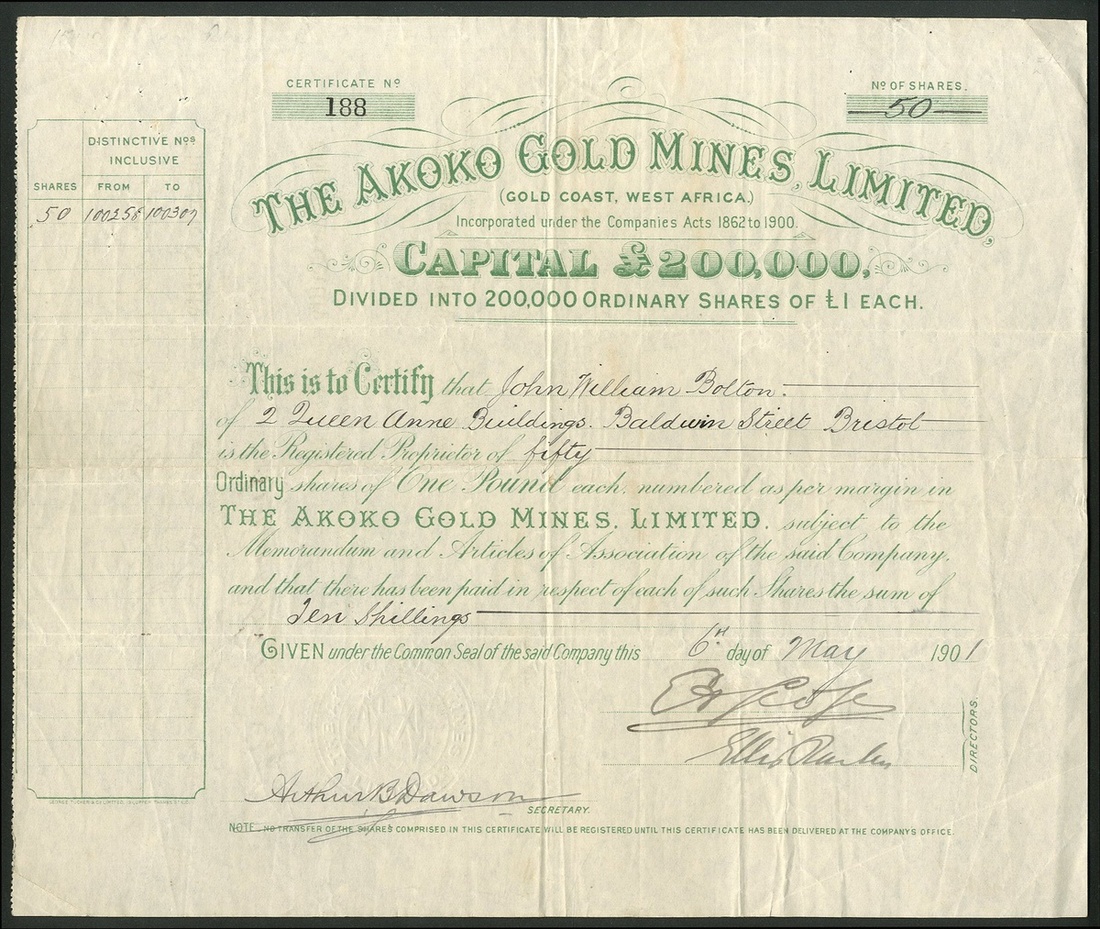 CERTIFICATE Nº
188
Nº OF SHARES.
50
DISTINCTIVE Nºs
INCLUSIVE
SHARES FROM TO
50 100258 100307
THE AKOKO GOLD MINES, LIMITED,
(GOLD COAST, WEST AFRICA.)
Incorporated under the Companies Acts 1862 to 1900.
CAPITAL £200,000,
DIVIDED INTO 200,000 ORDINARY SHARES OF £1 EACH.
This is to Certify that John William Bolton.
of 2 Queen Anne Buildings. Baldwin Street Bristol
is the Registered Proprietor of fifty
Ordinary shares of One Pound each, numbered as per margin in
THE AKOKO GOLD MINES, LIMITED, subject to the
Memorandum and Articles of Association of the said Company,
and that there has been paid in respect of each of such Shares the sum of
Ten Shillings
GIVEN under the Common Seal of the said Company this 6th day of May 1901
DIRECTORS.
Arthur B Dawson
SECRETARY.
NOTE. NO TRANSFER OF THE SHARES COMPRISED IN THIS CERTIFICATE WILL BE REGISTERED UNTIL THIS CERTIFICATE HAS BEEN DELIVERED AT THE COMPANY'S OFFICE.